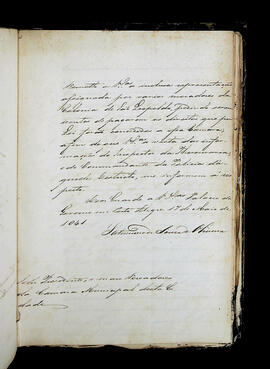 Remetto a V.mces a inclusa representação
assignada por varios moradores da
Colonia de São Leopoldo, pedindo serem
isentos de pagarem os direitos que por
Lei foram concedidos a essa Camara,
afim de que V.mces a vista das infor
mações do Inspector da Thesouraria,
e do Commandante da Policia da
quelle Districto, me informem a res
peito.
Deos Guarde a V.mces Palacio do
Governo em Porto Alegre 17 de Maio de
1841
Saturnino de Souza e Oliveira
Snrs. Presidente, e mais Vereadores
da Camara Municipal desta Ci
dade